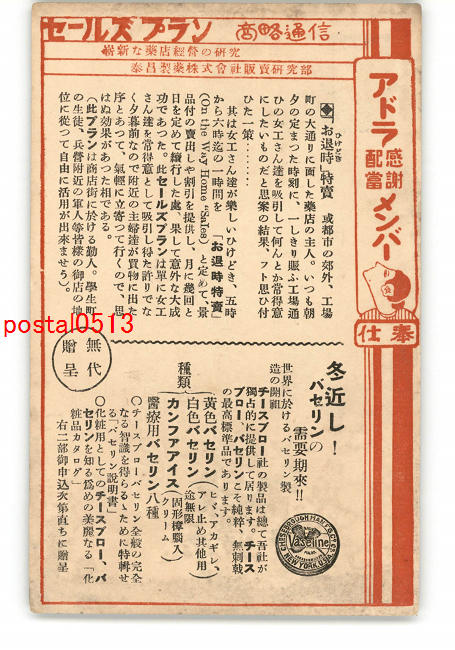 セールズプラン 商略通信
嶄新な藥店經營の研究
泰昌製藥株式會社販賣研究部
アドラ
感謝
配當
メンバー
奉仕
お退時特賣 或都市の郊外、工場
ひけどき
町の大通りに面した藥店の主人。いつも朝
夕の定まつた時刻に、一しきり賑ふ工場通
ひの女工さん達を吸引して何んとか常得意
にしたいものだと思案の結果、フト思ひ付
ひた一策………
其は女工さん達が樂しいひけどき、五時
から六時迄の一時間を 「お退時特賣」
(On the Way Home "Sales) と定めて、景
品付の賣出しや割引を提供し、月に幾回と
日を定めて續行した處、果して意外な大成
功であつた。此セールズプランは單に女工
さん達を常得意として吸引し得た許りでな
く夕暮前なので附近の主婦達が買物に出た
序とあつて、氣輕に立寄つて行くので、思
はぬ効果があつた相である。
(此プランは商店街に於ける勤人。學生町
の生徒、兵營附近の軍人等皆樣の御店の地
位に從つて自由に活用が出來ませう)。
postal0513
冬近し!
バセリンの
需要期來!!
世界に於けるバセリン製
造の開祖
チースブロー社の製品は總て吾社が
獨占的に提供して居ります。チース
ブロー、バセリンこそ純粹、無刺戟
の最高標準品であります。
CHESEBROUGH MAN'F'G CO CONS'D
Vaseline
NEW YORK, U.S.A.
種類
黃色バセリン(ヒヾ、アカギレ、
白色バセリン(アレ止め其他用
途無限
カンファアイス 固形樟腦入
クリーム
醫療用バセリン八種
無代
贈呈
〇チースブロー、バセリン全般の完全
なる智識を得らるゝために特輯せ
る「バセリン説明書」
〇化粧用としてのチースブロー、バ
セリンを知る爲めの美麗なる「化
粧品カタログ」
右二部御申込次第直ちに贈呈